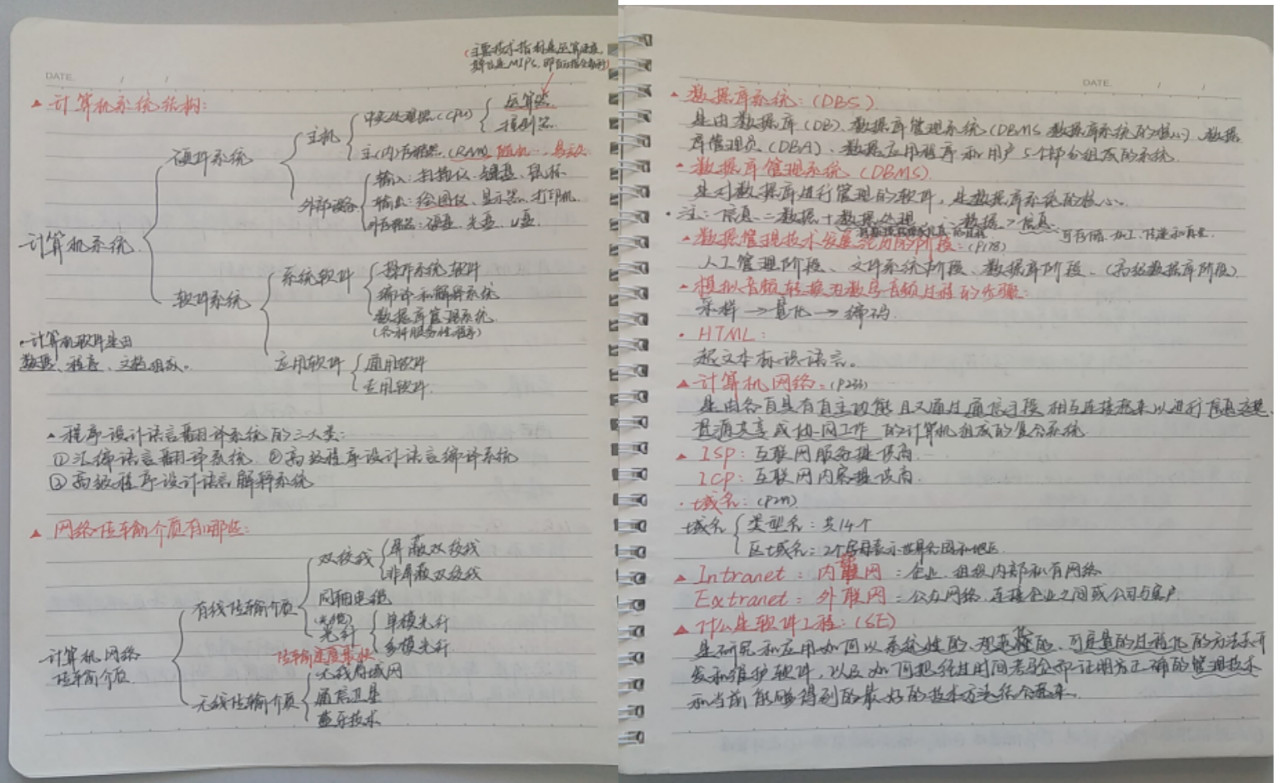 (主要技术指标是运算速度,
单位是MIPS,即百万指令每秒)
DATE / /
▲ 计算机系统结构:
计算机系统
硬件系统
主机
中央处理器(CPU)
运算器
控制器
主(内)存储器(RAM)随机
外部设备
输入:扫描仪、键盘、鼠标
输出:绘图仪、显示器、打印机
外存储器:硬盘、光盘、U盘
软件系统
系统软件
操作系统软件
编译和解释系统
数据库管理系统
(各种服务性程序)
应用软件
通用软件
专用软件
·计算机软件是由
数据、程序、文档组成。
▲程序设计语言翻译系统的三大类:
①汇编语言翻译系统 ②高级程序设计语言编译系统
③高级程序设计语言解释系统
▲ 网络传输介质有哪些:
计算机网络
传输介质
有线传输介质
双绞线
屏蔽双绞线
非屏蔽双绞线
同轴电缆
(光缆)
光纤
单模光纤
多模光纤
传输速度最快
无线传输介质
无线局域网
通信卫星
蓝牙技术
DATE. / /
▲数据库系统:(DBS)
是由数据库(DB)、数据库管理系统(DBMS 数据库系统的核心)、数据
库管理员(DBA)、数据应用程序和用户5个部分组成的系统.
·数据库管理系统(DBMS)
是对数据库进行管理的软件,是数据库系统的核心.
·注:信息=数据+数据处理 ∴数据>信息
可存储、加工、传递和再生.
·数据管理技术发展经历的阶段:(P178)
人工管理阶段、文件系统阶段、数据库阶段、(高级数据库阶段)
·模拟音频转换为数字音频过程的步骤:
采样→量化→编码
·HTML:
超文本标识语言。
▲计算机网络:(P233)
是由各自具有自主功能且又通过通信手段相互连接起来以进行信息交换、
资源共享或协同工作的计算机组成的复合系统.
▲ISP:互联网服务提供商.
ICP:互联网内容提供商.
·域名:(P249)
域名
类型名:共14个
区域域名:2个字母表示世界各国和地区
▲Intranet:内联网:企业、组织内部私有网络
Extranet:外联网:公办网络.连接企业之间或公司与客户.
▲什么是软件工程:(SE)
是研究和应用如何以系统性的、规范化的、可定量的过程化的方法去开
发和维护软件,以及如何把经过时间考验而证明为正确的管理技术
和当前能够得到的最好的技术方法结合起来.